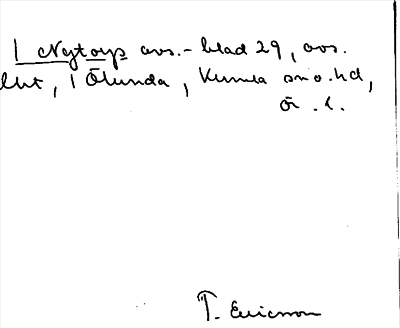 1 Nytorp avs.- blad 29, avs.
lht, 1 Ölunda, Kumla sn o. hd,
Ö. l.
T. Ericsson